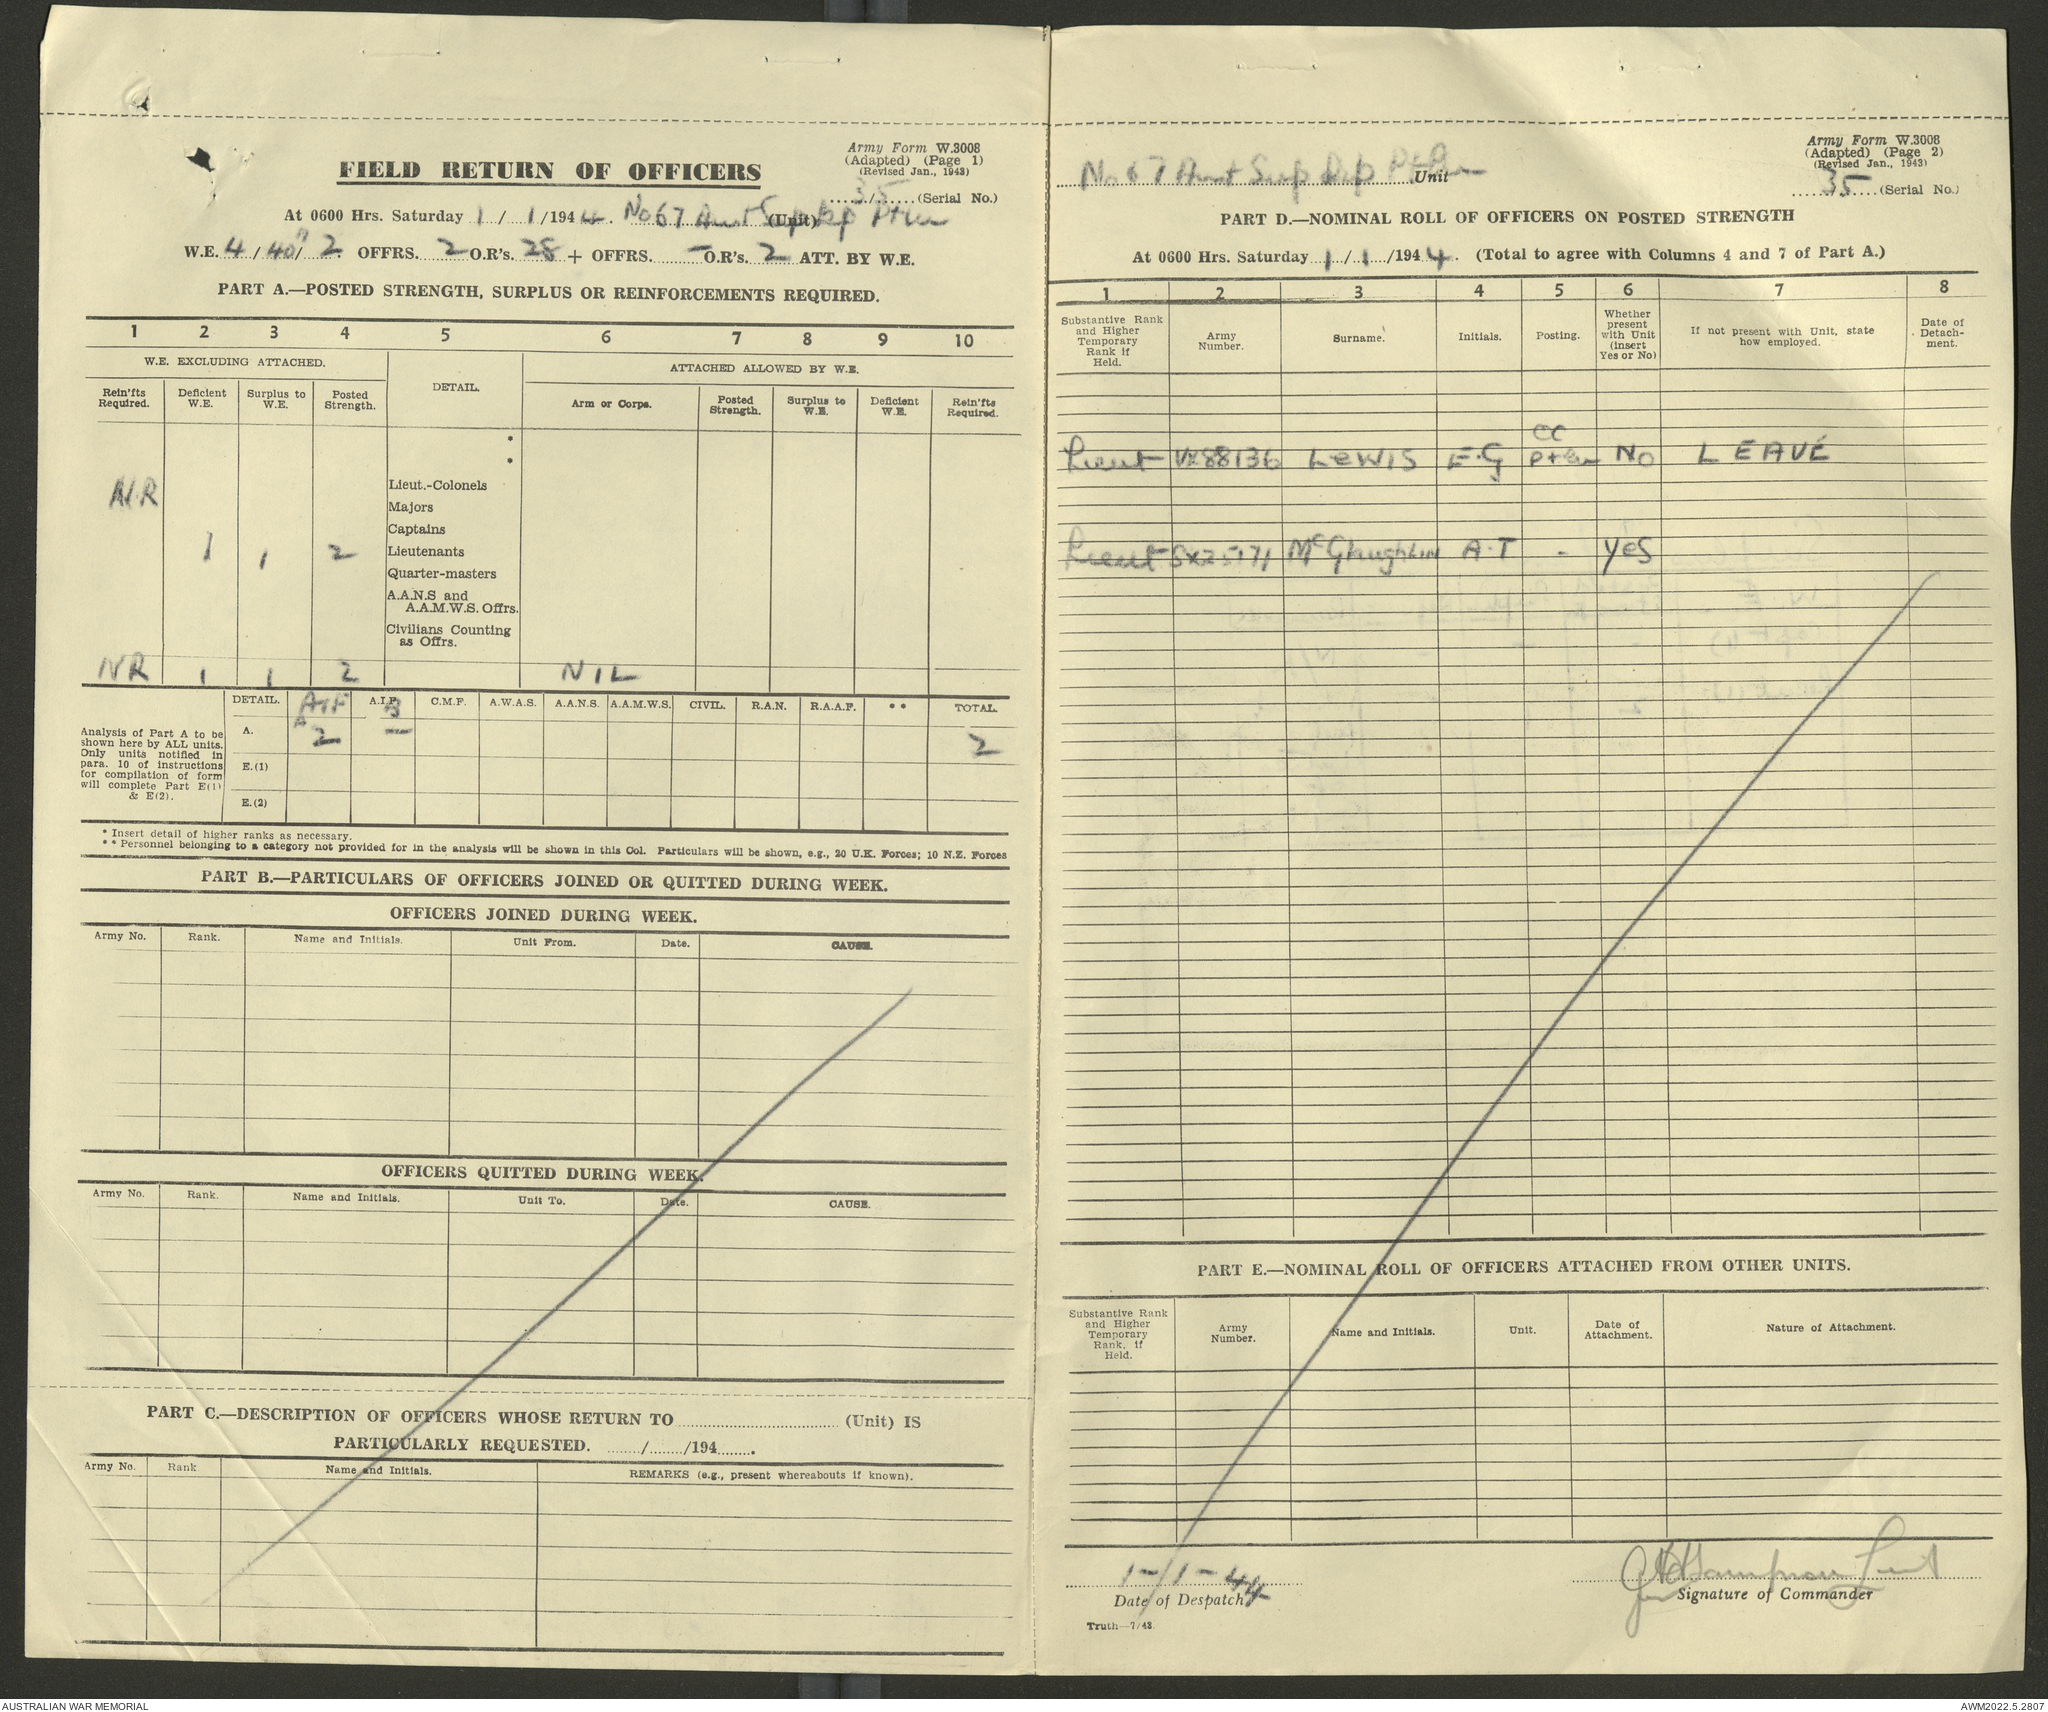 Army Form W.3008
(Adapted) (Page 1)
(Revised Jan., 1943)
FIELD RETURN OF OFFICERS
35 (Serial No.)
At 0600 Hrs. Saturday 1/1/1944. No 67 Aust Sup Dep Ptln (Unit)
W.E. 4/40/2 OFFRS. 2 O.R's. 28 + OFFRS. - O.R's. 2 ATT. BY W.E.
PART A.—POSTED STRENGTH, SURPLUS OR REINFORCEMENTS REQUIRED.
1 2 3 4 5 6 7 8 9 10
W.E. EXCLUDING ATTACHED. DETAIL. ATTACHED ALLOWED BY W.E.
Rein'fts Required. Deficient W.E. Surplus to W.E. Posted Strength. Arm or Corps. Posted Strength. Surplus to W.E. Deficient W.E. Rein'fts Required.
*
*
N.R Lieut.-Colonels
Majors
Captains
1 1 2 Lieutenants
Quarter-masters
A.A.N.S and
A.A.M.W.S. Offrs.
Civilians Counting
as Offrs.
NR 1 1 2 NIL
DETAIL. AIF A A.I.F. B C.M.F. A.W.A.S. A.A.N.S. A.A.M.W.S. CIVIL. R.A.N. R.A.A.F. ** TOTAL.
Analysis of Part A to be shown here by ALL units. Only units notified in para. 10 of instructions for compilation of form will complete Part E(1) & E(2).
A. 2 — 2
E.(1)
E.(2)
* Insert detail of higher ranks as necessary.
** Personnel belonging to a category not provided for in the analysis will be shown in this Col. Particulars will be shown, e.g., 20 U.K. Forces; 10 N.Z. Forces
PART B.—PARTICULARS OF OFFICERS JOINED OR QUITTED DURING WEEK.
OFFICERS JOINED DURING WEEK.
Army No. Rank. Name and Initials. Unit From. Date. CAUSE.
OFFICERS QUITTED DURING WEEK.
Army No. Rank. Name and Initials. Unit To. Date. CAUSE.
PART C.—DESCRIPTION OF OFFICERS WHOSE RETURN TO (Unit) IS
PARTICULARLY REQUESTED. / /194 .
Army No. Rank Name and Initials. REMARKS (e.g., present whereabouts if known).
Army Form W.3008
(Adapted) (Page 2)
(Revised Jan., 1943)
No 67 Aust Sup Dep Ptln Unit
35 (Serial No.)
PART D.—NOMINAL ROLL OF OFFICERS ON POSTED STRENGTH
At 0600 Hrs. Saturday 1/1/1944. (Total to agree with Columns 4 and 7 of Part A.)
1 2 3 4 5 6 7 8
Substantive Rank and Higher Temporary Rank if Held. Army Number. Surname. Initials. Posting. Whether present with Unit (insert Yes or No) If not present with Unit, state how employed. Date of Detachment.
Lieut VX88136 LEWIS E.G OC Ptln NO LEAVE
Lieut SX25171 McGlaughlin A.T - Yes
PART E.—NOMINAL ROLL OF OFFICERS ATTACHED FROM OTHER UNITS.
Substantive Rank and Higher Temporary Rank, if Held. Army Number. Name and Initials. Unit. Date of Attachment. Nature of Attachment.
1-1-44
Date of Despatch
Lieut
Signature of Commander
Truth—7/43
AUSTRALIAN WAR MEMORIAL
AWM2022.5.2807